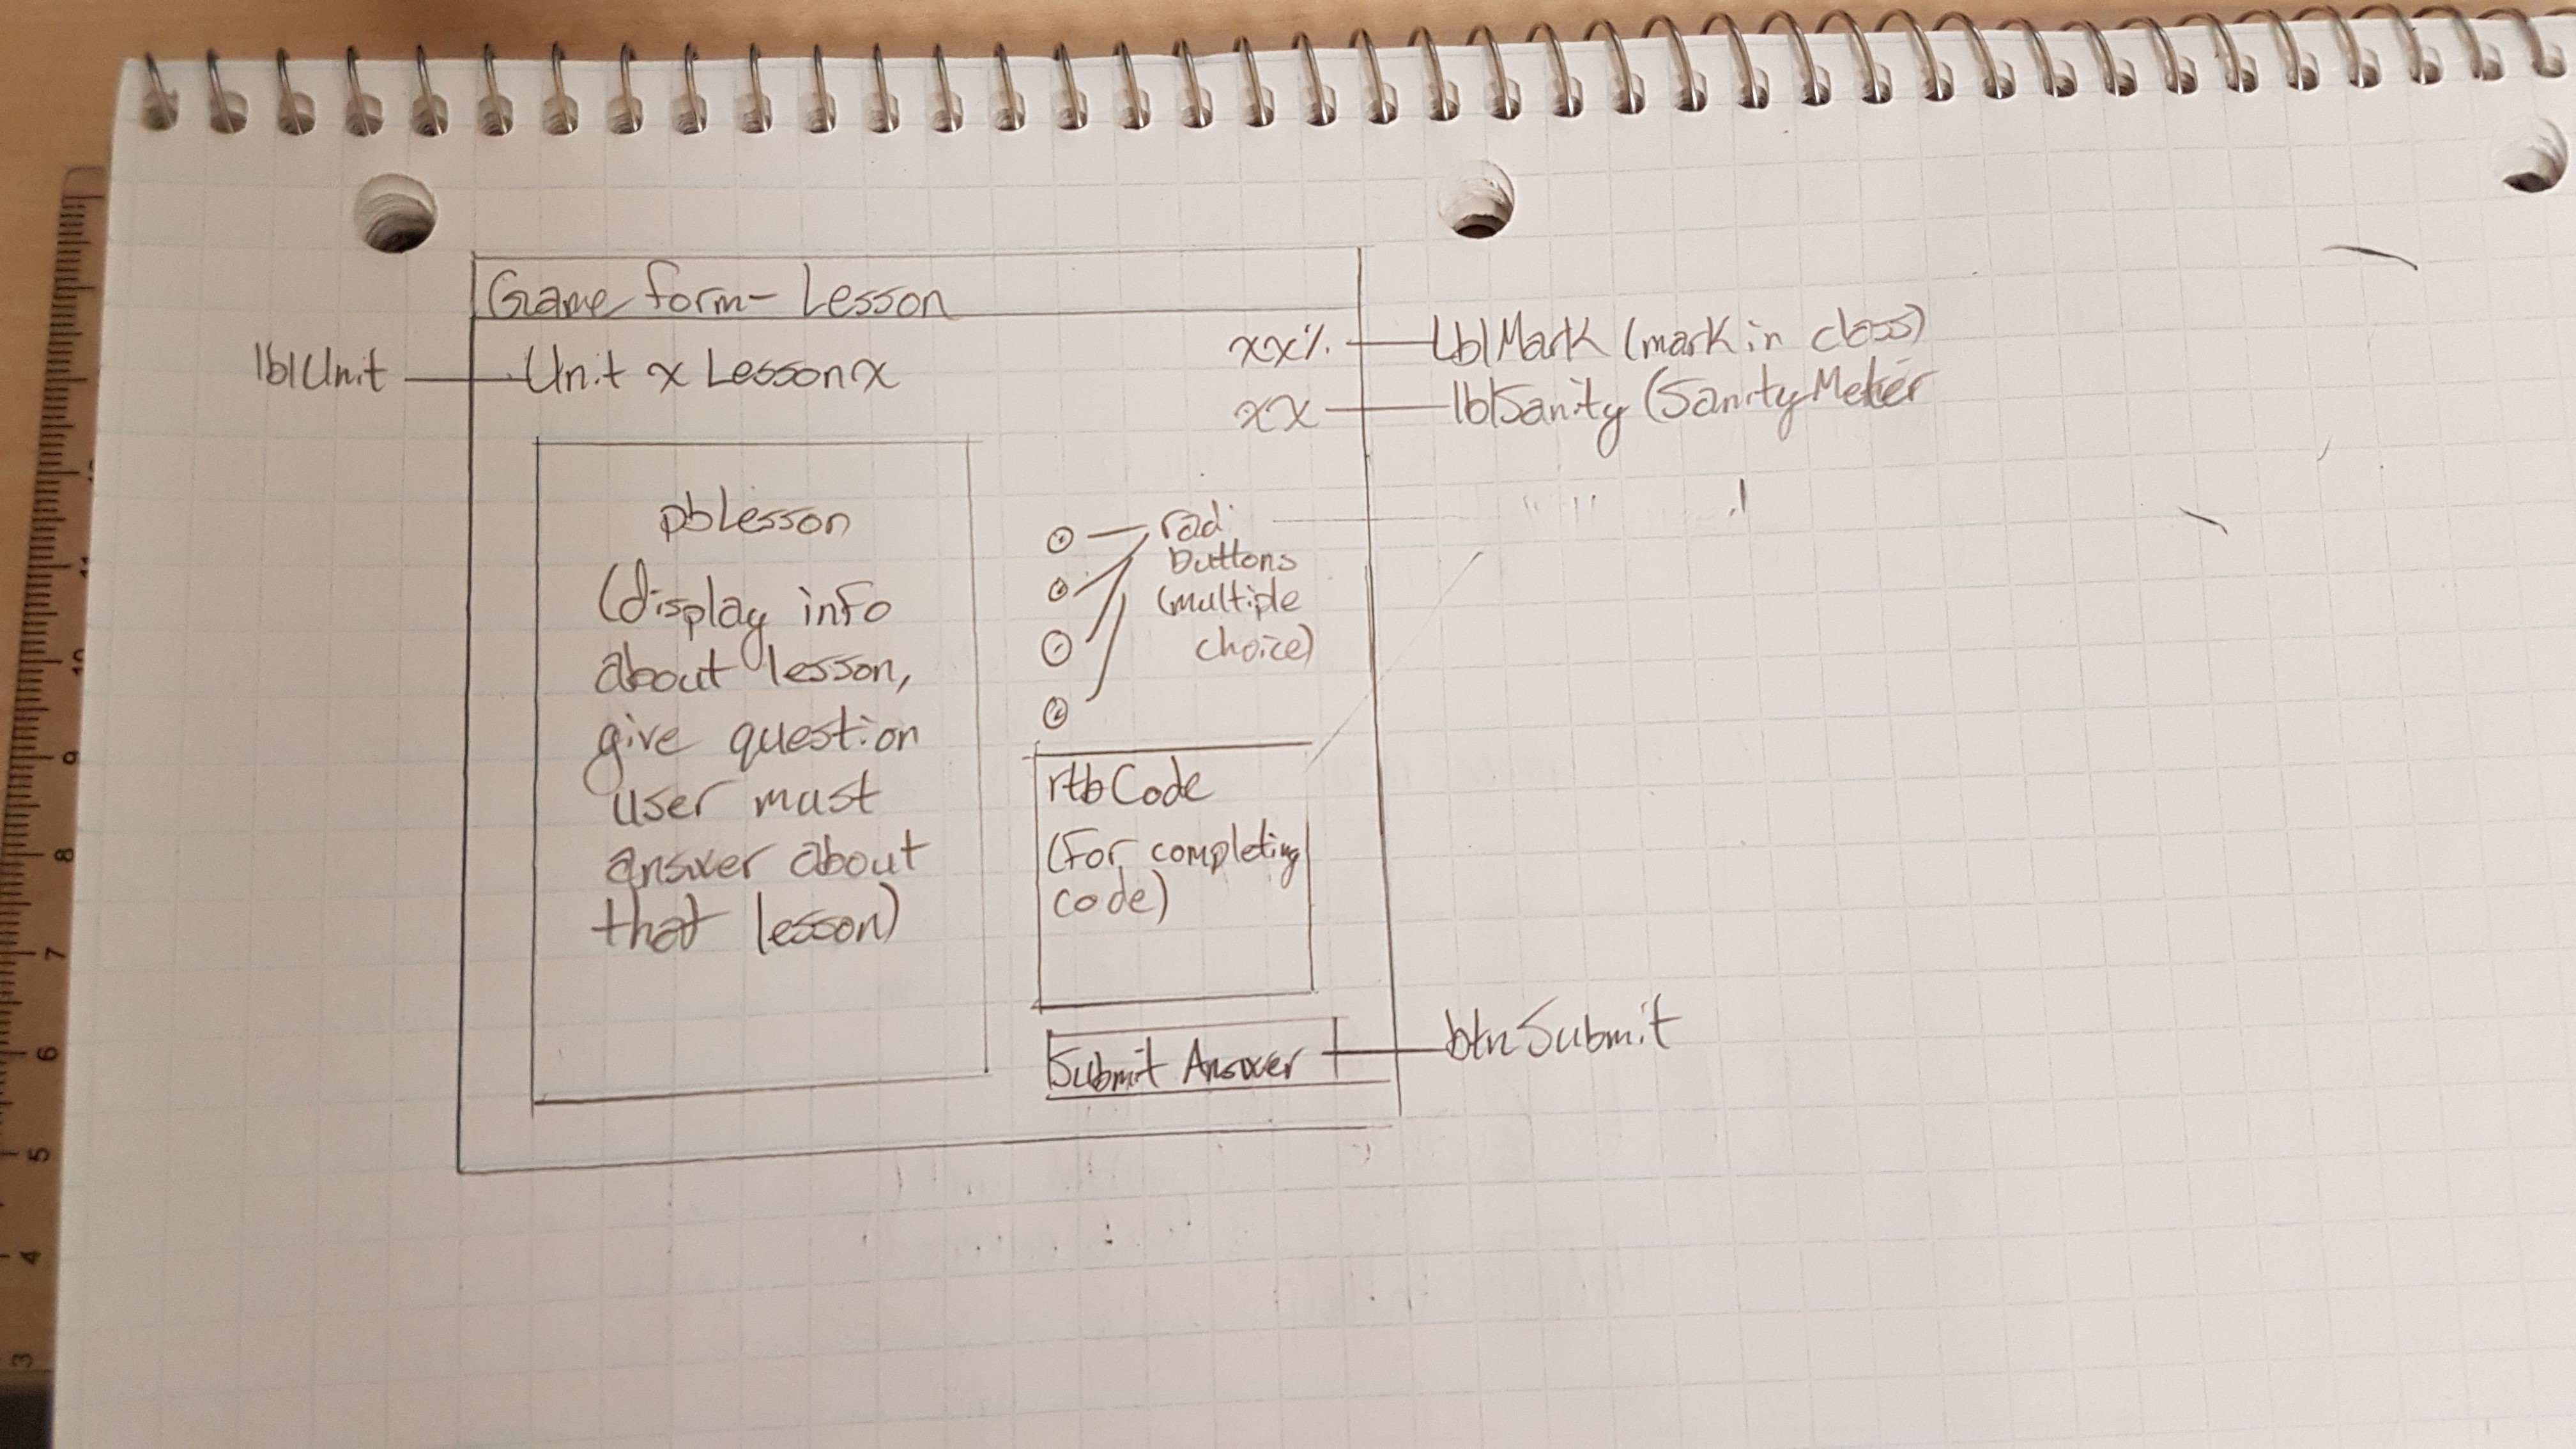 Game form- Lesson
lblUnit
Unit x Lesson x
xx%
lblMark (mark in class)
xx
lblSanity (Sanity Meter
pbLesson
(display info
about lesson,
give question
user must
answer about
that lesson)
rad
buttons
(multiple
choice)
rtbCode
(for completing
code)
Submit Answer
btnSubmit
11
10
9
8
7
6
5
4
3